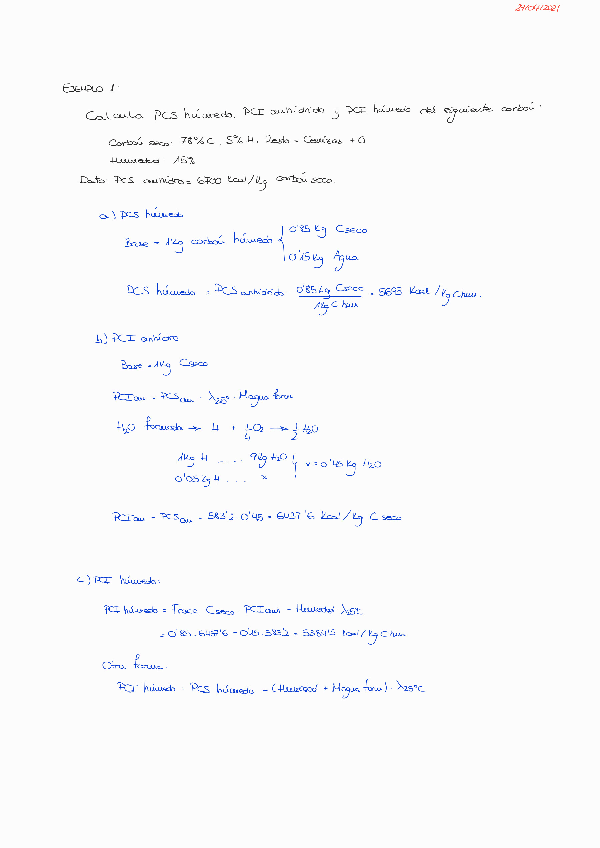 29/04/2021
EJEMPLO 1:
Calcula PCS húmedo, PCI anhidrido y PCI húmedo del siguiente carbón:
Carbón seco: 78% C, 5% H, Resto = Cenizas + O
Humedad 15%
Dato PCS anhidro = 6700 Kcal/Kg carbón seco.
a) PCS húmedo
Base = 1Kg carbón húmedo
0'85 Kg Cseco
0'15 Kg Agua
PCS húmedo = PCS anhidrido 0'85 Kg Cseco / 1Kg C hum = 5695 Kcal/Kg C hum.
b) PCI anhidro
Base = 1Kg Cseco
PCIan = PCSan - λ25º · Magua form
H2O formada → H + 1/4 O2 → 1/2 H2O
1Kg H .... 9Kg H2O
0'05 Kg H .... x
x = 0'45 Kg H2O
PCIan = PCSan - 583'2 · 0'45 = 6437'6 Kcal/Kg C seco
c) PCI húmedo:
PCI húmedo = Fracc Cseco · PCIan - Humedad · λ25ºC
= 0'85 · 6437'6 - 0'15 · 583'2 = Kcal/Kg C hum
Otra forma:
PCI húmedo = PCS húmedo - (Humedad + Magua form) · λ25ºC